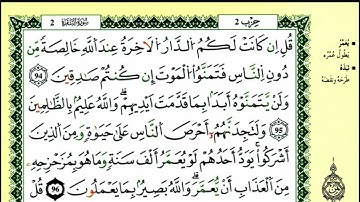 2 سورة البقرة حزب 2
قُلِ اِن كَانَتْ لَكُمُ الدَّارُ الَاخِرَةُ عِندَ اللَّهِ خَالِصَةً مِّن
دُونِ النَّاسِ فَتَمَنَّوُا الْمَوْتَ إِن كُنتُمْ صَادِقِينَ 94
وَلَنْ يَّتَمَنَّوْهُ أَبَدًا بِمَا قَدَّمَتَ اَيْدِيهِمْ وَاللَّهُ عَلِيمٌ بِالظَّالِمِينَ
95 وَلَتَجِدَنَّهُمُ أَحْرَصَ النَّاسِ عَلَى حَيَوٰةٍ وَمِنَ الَّذِينَ
أَشْرَكُوا يَوَدُّ أَحَدُهُمْ لَوْ يُعَمَّرُ أَلْفَ سَنَةٍ وَمَا هُوَ بِمُزَحْزِحِهِ
مِنَ الْعَذَابِ أَنْ يُّعَمَّرَ وَاللَّهُ بَصِيرٌ بِمَا يَعْمَلُونَ 96 قُلْ
يُعَمَّرُ
يطول عمره
نبذه
طرحه ونقضه